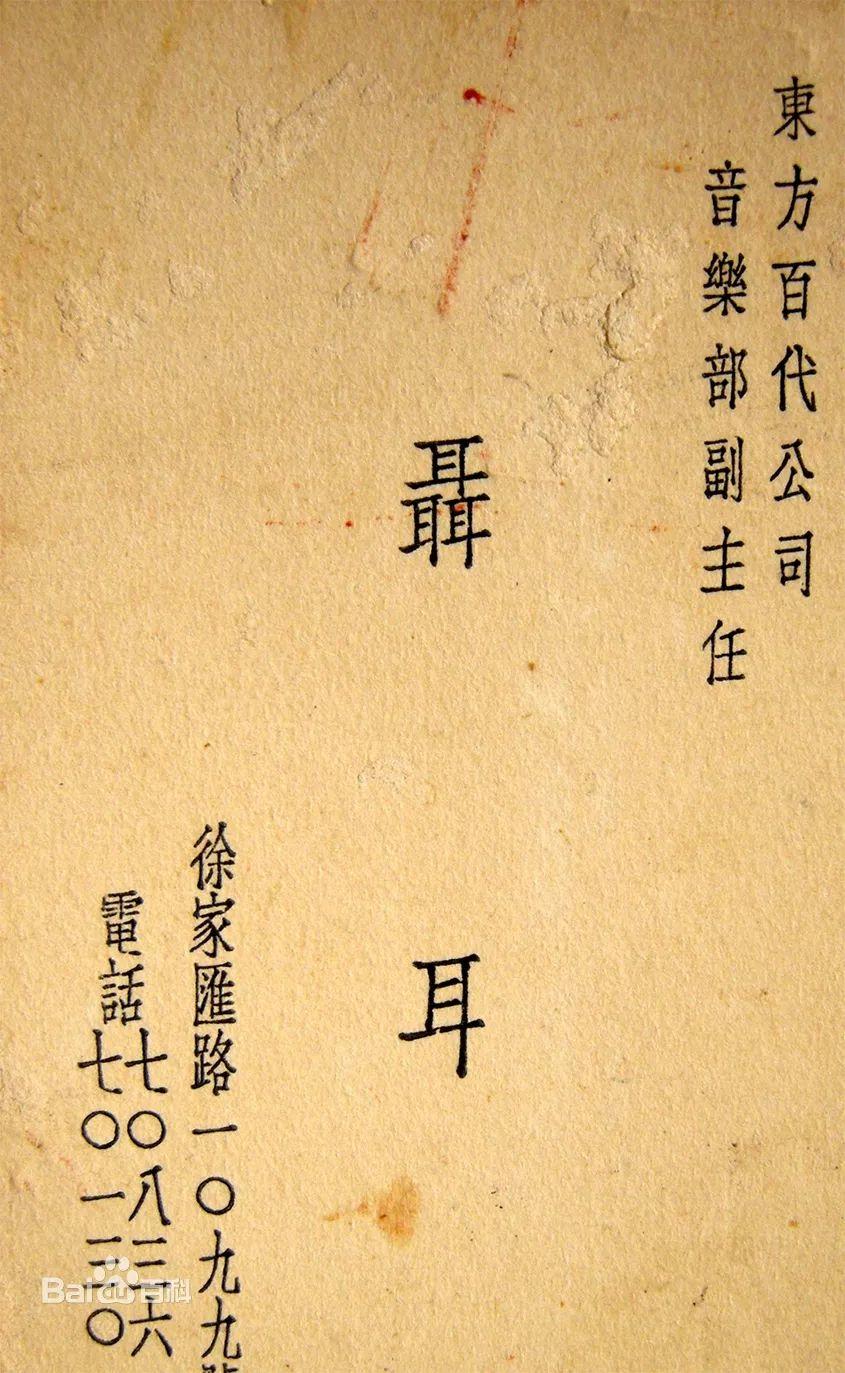 東方百代公司
音樂部副主任
聶耳
徐家匯路一〇九九
電話
七〇八三六
七〇一三〇
Baidu百科